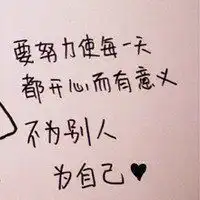 要努力使每一天
都开心而有意义
不为别人
为自己♥